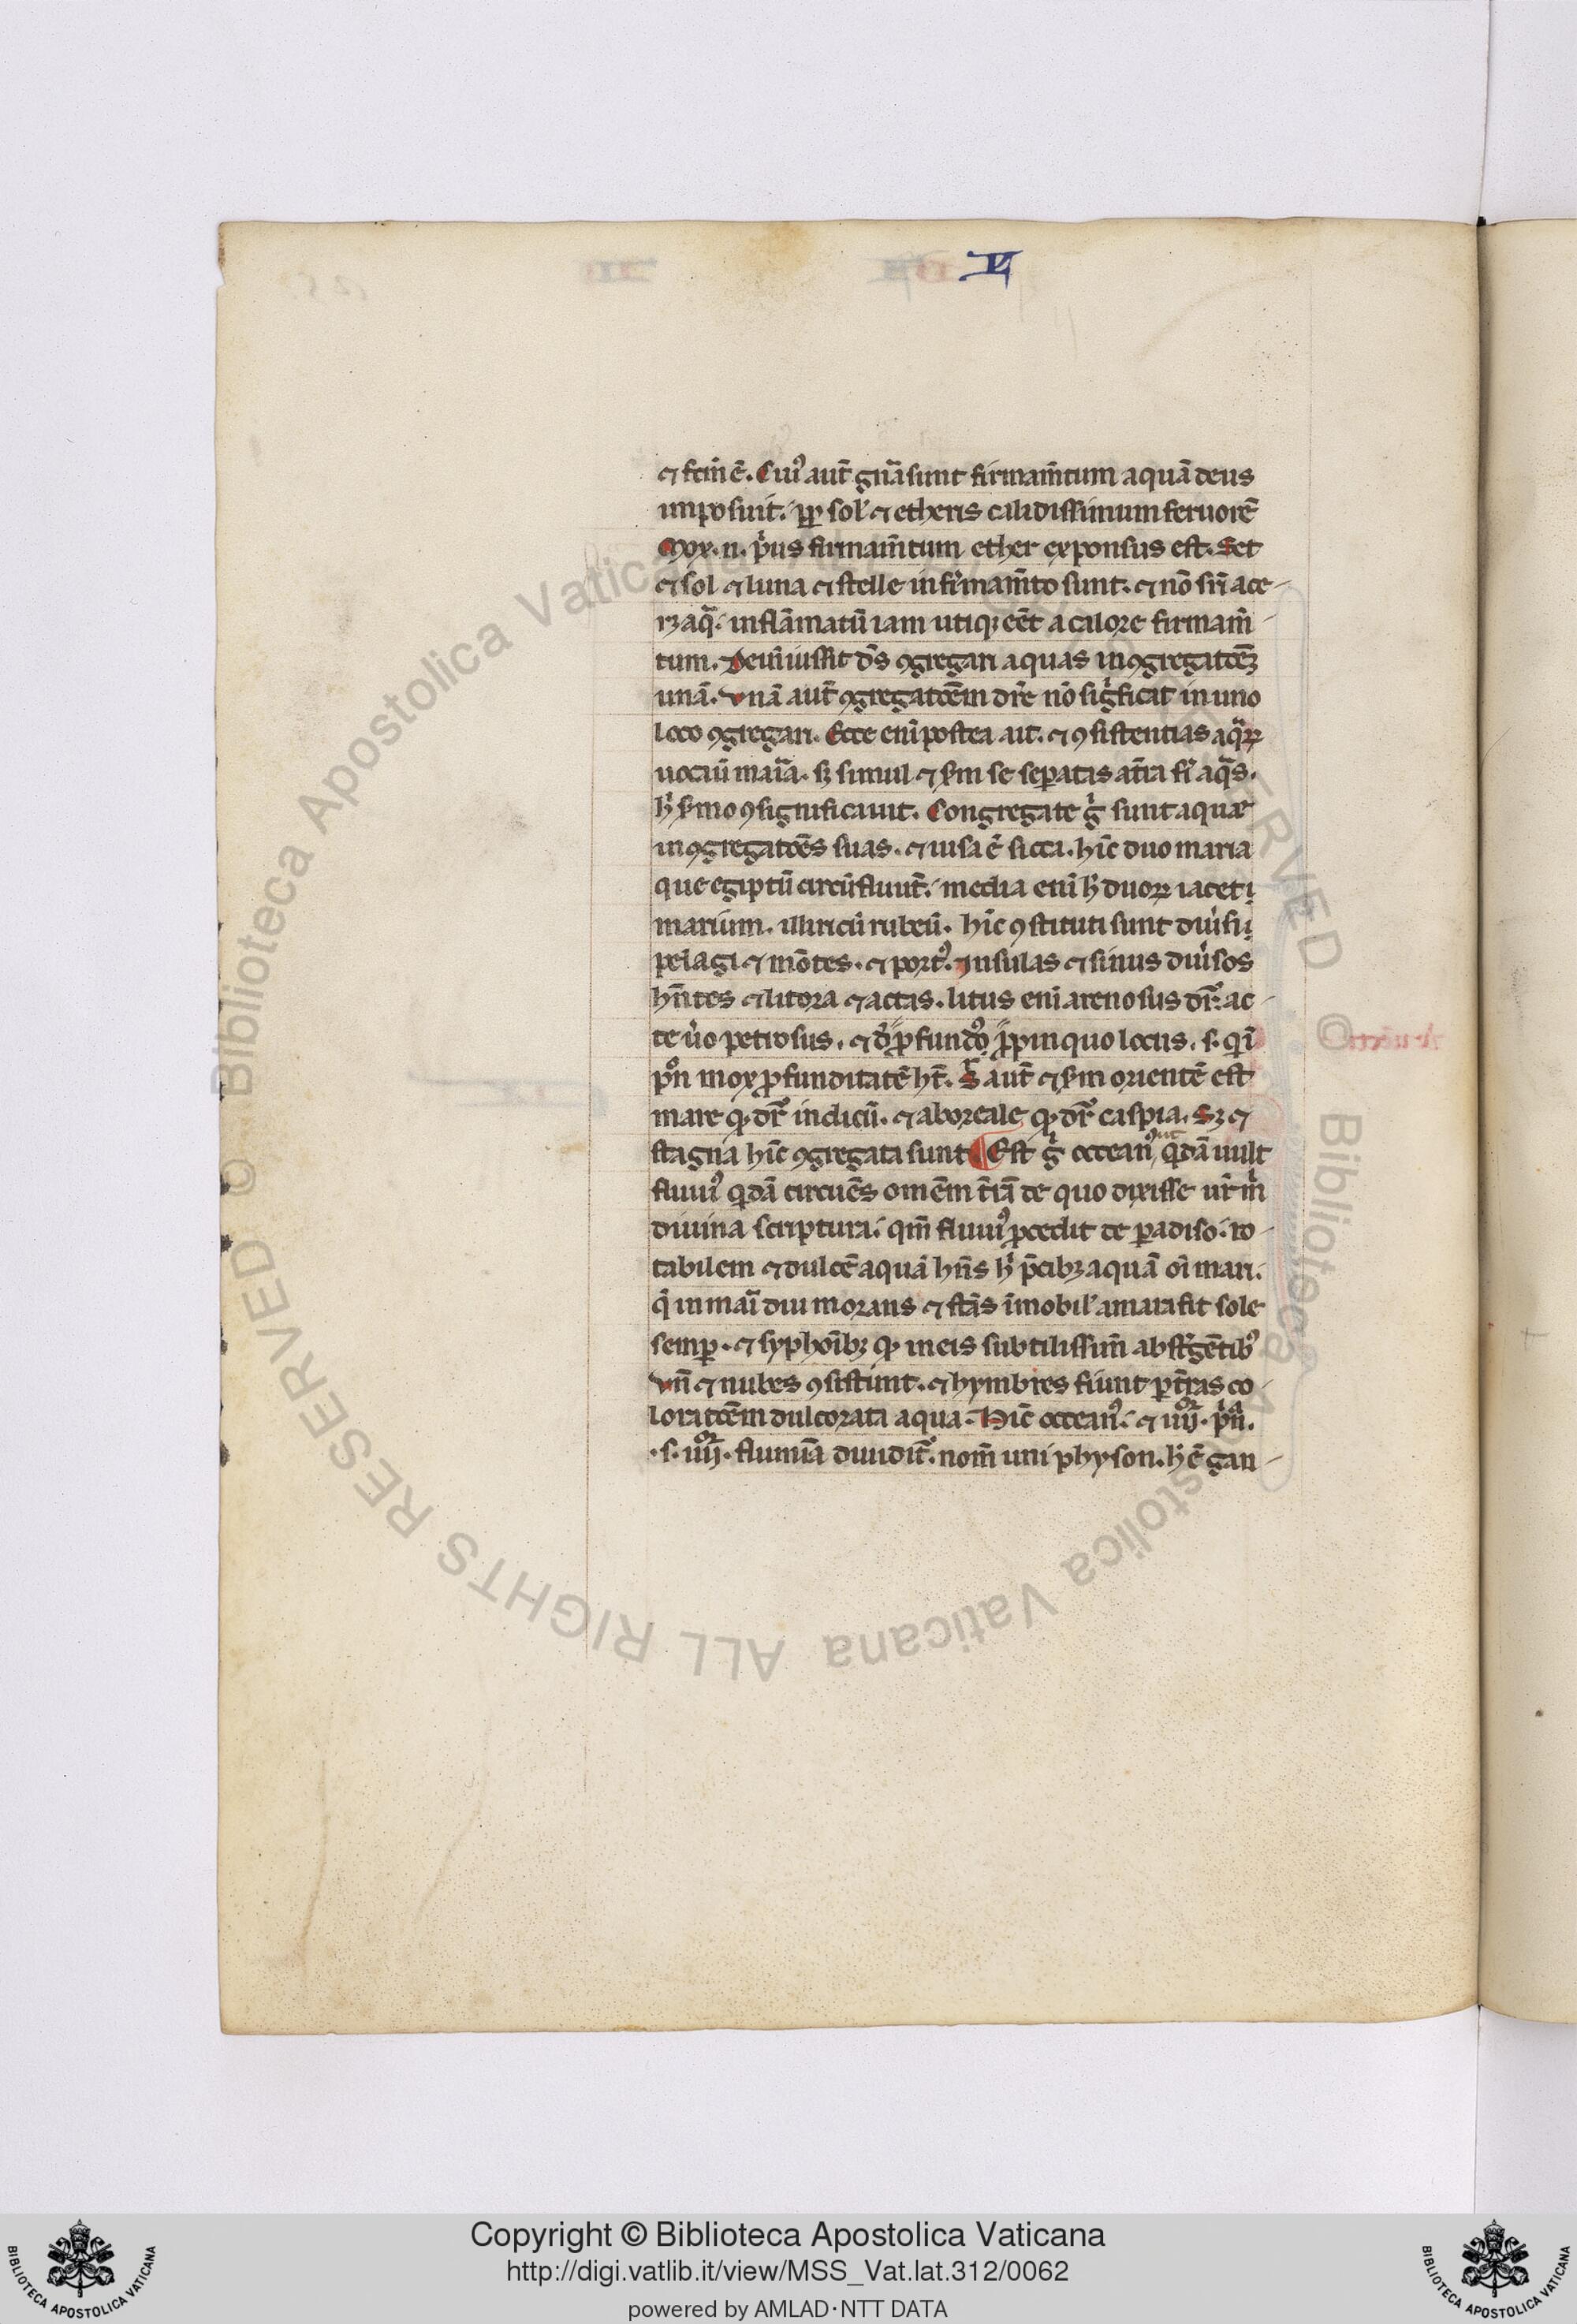 VI
⁊ fcm̄ ē. Cuiꝰ aut̄ gr̄a sunt firmam̄tum aquā deus
imposuit. ꝓpr̄ sol̓ ⁊ etheris calidissimum feruorē
Mox. n. pͥus firmam̄tum ether exponsus est. Set
⁊ sol ⁊ luna ⁊ stelle in firmam̄to sunt. ⁊ nō sn̄ ace-
rꝫ aq̄. inflāmatū iam utiqꝫ eēt a calore firmam̄
tum. Dein̄ iussit dn̄s ꝯgregari aquas in ꝯgregatōēꝫ
unā. Vnā aut̄ ꝯgregatōēm dr̄e nō sigͥficat in uno
loco ꝯgregari. Ecce eni postea ait. ⁊ ꝯsistentias aqͣꝝ
uocauū maria. sꝫ simul ⁊ ẜm se separatas
ẜmo ꝯsignificauit. Congregate gͦ sunt aquae
in ꝯgregatōēs suas. ⁊ uisa ē sicca. hīc duo maria
que egiptū circūfluūt. media eni duoꝝ iacet
marium. illiricū rubeū. hīc ꝯstituti sunt diu̓si
pelagi ⁊ mōtes. ⁊ portꝰ. Insulas ⁊ sinus diu̓sos
hn̄tes ⁊ litora ⁊ actas. litus eni arenosus dr̄. ac-
te u̓o petrosus. ⁊ ꝓfundo ꝓpinquo locus. s. qi
pͦn mox ꝓfunditatē ht̄. aut̄ ⁊ ẜm orientē est
mare qͦ dr̄ indicū. ⁊ aboreale qͦ dr̄ caspia. Sꝫ ⁊
stagna hīc ꝯgregata sunt ¶ Est gͦ occeanꝰ ut qͥdā uult
fluuiꝰ qͥdā circuēs omēm t̄rā de quo dixisse ur̄ m
diuina scriptura. qm̄ fluuiꝰ ꝓcedit de paradiso. ro-
tabilem ⁊ dulcē aquā hn̄s aquā oi mari.
qͥ in mari diu morans ⁊ stās īmobil̓ amara fit sole
semꝑ. ⁊ syphoībꝫ qͦ in eis subtilissim̄ abstͥgētibꝰ
Vn̄ ⁊ nubes ꝯsistūt. ⁊ hymbres fiunt ꝑ t̄ras co-
loratōēm dulcorata aqua. Hic occeanꝰ. ⁊ iiijͦʳ. pͥn.
.s. iiijͦʳ. flumīa diuidit̓. nom̄ uni physon. hͨ ē gan-
Copyright © Biblioteca Apostolica Vaticana
http://digi.vatlib.it/view/MSS_Vat.lat.312/0062
powered by AMLAD·NTT DATA
BIBLIOTECA APOSTOLICA VATICANA
BIBLIOTECA APOSTOLICA VATICANA
© Biblioteca Apostolica Vaticana ALL RIGHTS RESERVED